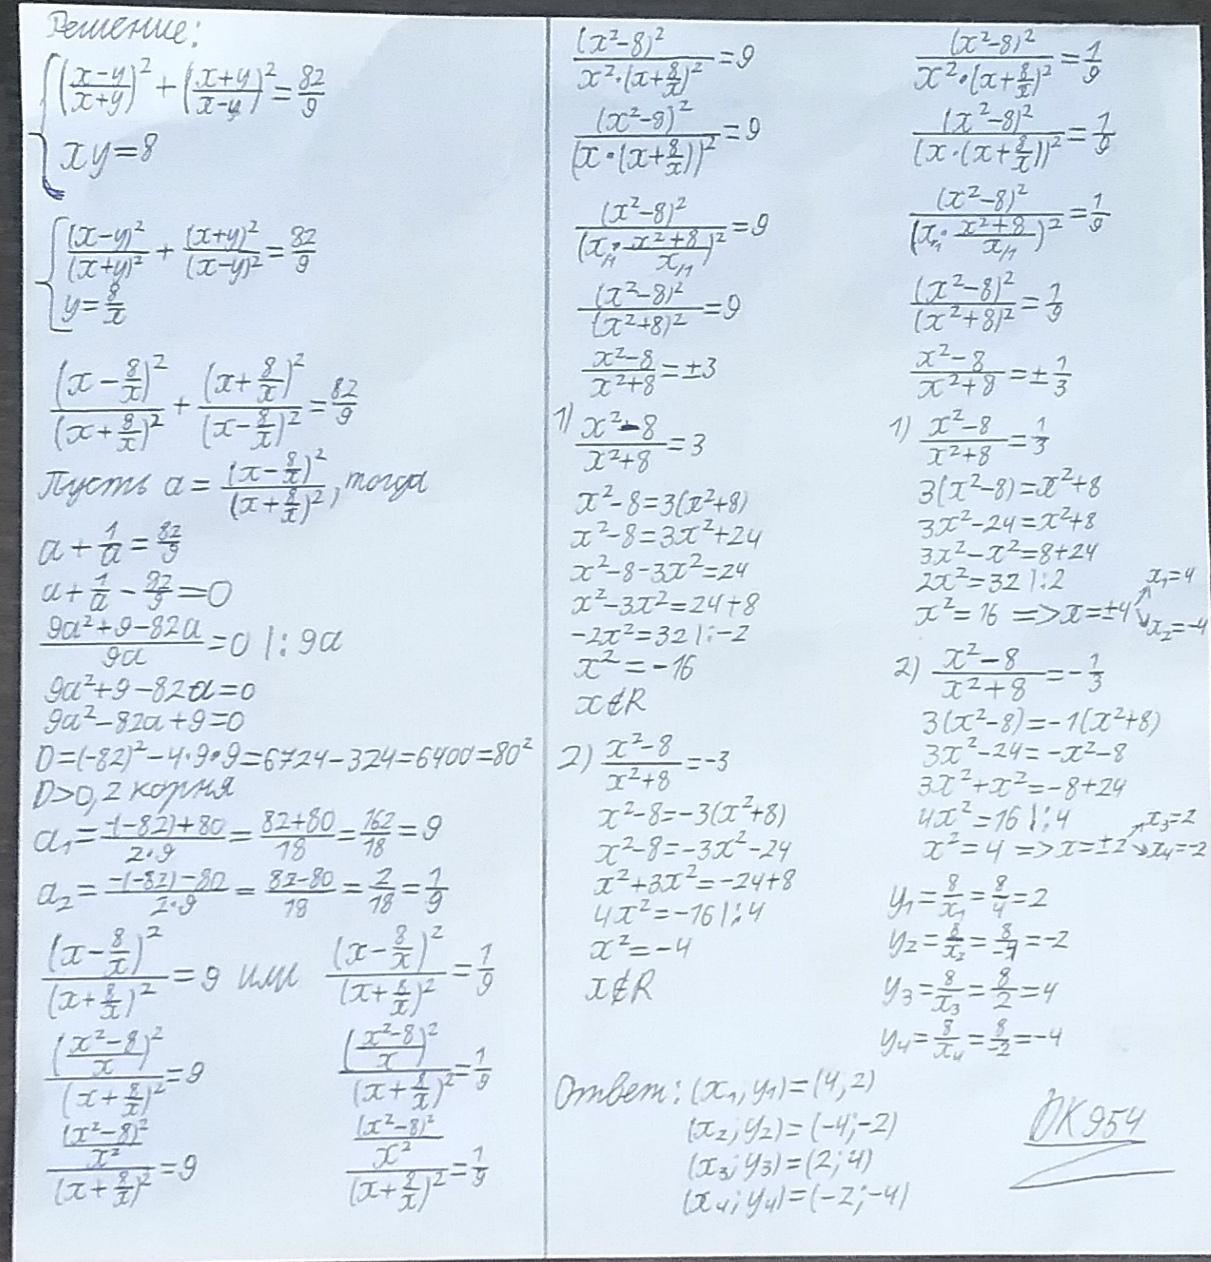 Решение:
((x-y)/(x+y))² + ((x+y)/(x-y))² = 82/9
xy=8
(x-y)²/(x+y)² + (x+y)²/(x-y)² = 82/9
y=8/x
(x-8/x)²/(x+8/x)² + (x+8/x)²/(x-8/x)² = 82/9
Пусть a = (x-8/x)²/(x+8/x)², тогда
a+1/a=82/9
a+1/a-82/9=0
(9a²+9-82a)/9a=0 |:9a
9a²+9-82a=0
9a²-82a+9=0
D=(-82)²-4·9·9=6724-324=6400=80²
D>0, 2 корня
a₁=(-(-82)+80)/(2·9)=(82+80)/18=162/18=9
a₂=(-(-82)-80)/(2·9)=(82-80)/18=2/18=1/9
(x-8/x)²/(x+8/x)²=9 или (x-8/x)²/(x+8/x)²=1/9
((x²-8)/x)²/(x+8/x)²=9 ((x²-8)/x)²/(x+8/x)²=1/9
((x²-8)²/x²)/(x+8/x)²=9 ((x²-8)²/x²)/(x+8/x)²=1/9
(x²-8)²/(x²·(x+8/x)²)=9
(x²-8)²/(x·(x+8/x))²=9
(x²-8)²/(x/1·(x²+8)/x/1)²=9
(x²-8)²/(x²+8)²=9
(x²-8)/(x²+8)=±3
1) (x²-8)/(x²+8)=3
x²-8=3(x²+8)
x²-8=3x²+24
x²-8-3x²=24
x²-3x²=24+8
-2x²=32 |:-2
x²=-16
x∉R
2) (x²-8)/(x²+8)=-3
x²-8=-3(x²+8)
x²-8=-3x²-24
x²+3x²=-24+8
4x²=-16 |:4
x²=-4
x∉R
(x²-8)²/(x²·(x+8/x)²)=1/9
(x²-8)²/(x·(x+8/x))²=1/9
(x²-8)²/(x/1·(x²+8)/x/1)²=1/9
(x²-8)²/(x²+8)²=1/9
(x²-8)/(x²+8)=±1/3
1) (x²-8)/(x²+8)=1/3
3(x²-8)=x²+8
3x²-24=x²+8
3x²-x²=8+24
2x²=32 |:2
x²=16 => x=±4 ↗x₁=4 ↘x₂=-4
2) (x²-8)/(x²+8)=-1/3
3(x²-8)=-1(x²+8)
3x²-24=-x²-8
3x²+x²=-8+24
4x²=16 |:4
x²=4 => x=±2 ↗x₃=2 ↘x₄=-2
y₁=8/x₁=8/4=2
y₂=8/x₂=8/-4=-2
y₃=8/x₃=8/2=4
y₄=8/x₄=8/-2=-4
Ответ: (x₁,y₁)=(4,2)
(x₂;y₂)=(-4;-2)
(x₃;y₃)=(2;4)
(x₄;y₄)=(-2;-4)
ЮК954